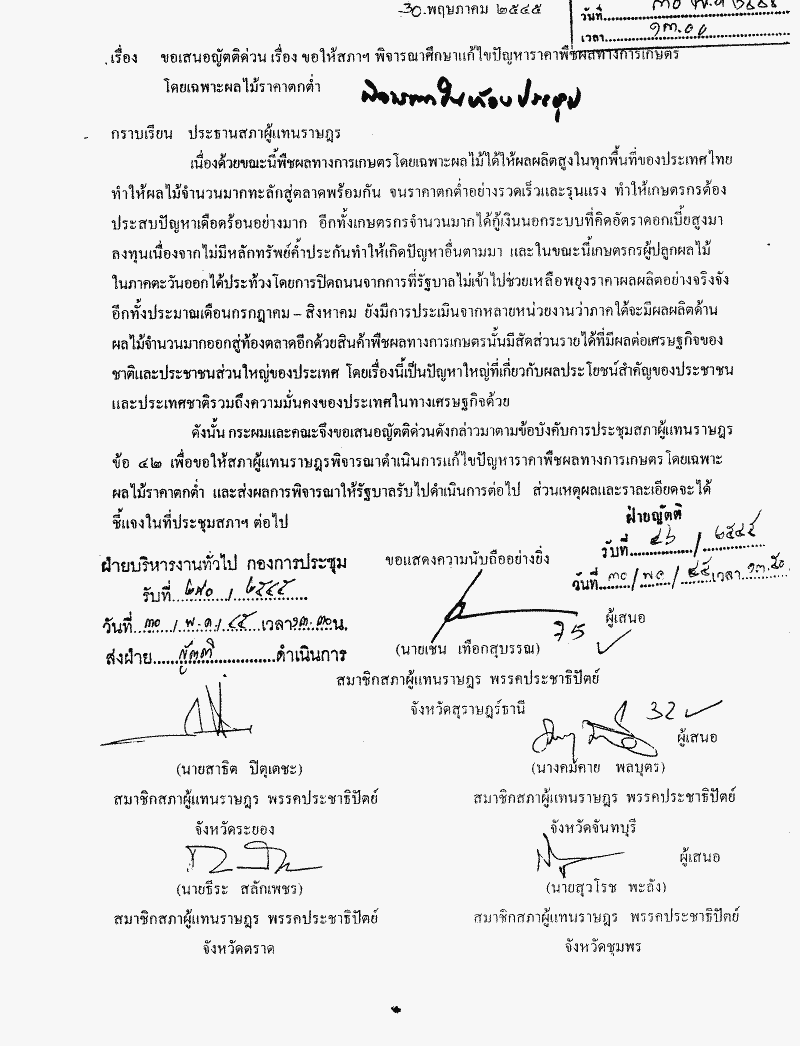 30 พฤษภาคม ๒๕๔๕
วันที่ ๓๐ พ.ค ๒๕๔๕
เวลา ๑๓.๐๐
เรื่อง ขอเสนอญัตติด่วน เรื่อง ขอให้สภาฯ พิจารณาศึกษาแก้ไขปัญหาราคาพืชผลทางการเกษตร
โดยเฉพาะผลไม้ราคาตกต่ำ
พิจารณาในห้องประชุม
กราบเรียน ประธานสภาผู้แทนราษฎร
เนื่องด้วยขณะนี้พืชผลทางการเกษตรโดยเฉพาะผลไม้ได้ให้ผลผลิตสูงในทุกพื้นที่ของประเทศไทย
ทำให้ผลไม้จำนวนมากทะลักสู่ตลาดพร้อมกัน จนราคาตกต่ำอย่างรวดเร็วและรุนแรง ทำให้เกษตรกรต้อง
ประสบปัญหาเดือดร้อนอย่างมาก อีกทั้งเกษตรกรจำนวนมากได้กู้เงินนอกระบบที่คิดอัตราดอกเบี้ยสูงมา
ลงทุนเนื่องจากไม่มีหลักทรัพย์ค้ำประกันทำให้เกิดปัญหาอื่นตามมา และในขณะนี้เกษตรกรผู้ปลูกผลไม้
ในภาคตะวันออกได้ประท้วงโดยการปิดถนนจากการที่รัฐบาลไม่เข้าไปช่วยเหลือพยุงราคาผลผลิตอย่างจริงจัง
อีกทั้งประมาณเดือนกรกฎาคม – สิงหาคม ยังมีการประเมินจากหลายหน่วยงานว่าภาคใต้จะมีผลผลิตด้าน
ผลไม้จำนวนมากออกสู่ท้องตลาดอีกด้วยสินค้าพืชผลทางการเกษตรนั้นมีสัดส่วนรายได้ที่มีผลต่อเศรษฐกิจของ
ชาติและประชาชนส่วนใหญ่ของประเทศ โดยเรื่องนี้เป็นปัญหาใหญ่ที่เกี่ยวกับผลประโยชน์สำคัญของประชาชน
และประเทศชาติรวมถึงความมั่นคงของประเทศในทางเศรษฐกิจด้วย
ดังนั้น กระผมและคณะจึงขอเสนอญัตติด่วนดังกล่าวมาตามข้อบังคับการประชุมสภาผู้แทนราษฎร
ข้อ ๔๒ เพื่อขอให้สภาผู้แทนราษฎรพิจารณาดำเนินการแก้ไขปัญหาราคาพืชผลทางการเกษตรโดยเฉพาะ
ผลไม้ราคาตกต่ำ และส่งผลการพิจารณาให้รัฐบาลรับไปดำเนินการต่อไป ส่วนเหตุผลและราละเอียดจะได้
ชี้แจงในที่ประชุมสภาฯ ต่อไป
ฝ่ายญัตติ
รับที่ ๔๖ / ๒๕๔๕
วันที่ ๓๐ / พค / ๔๕ เวลา ๑๓.๕๐
ฝ่ายบริหารงานทั่วไป กองการประชุม
รับที่ ๒๙๐ / ๒๕๔๕
วันที่ ๓๐ / พ.ค / ๔๕ เวลา ๑๓.๓๐ น.
ส่งฝ่าย ญัตติ ดำเนินการ
ขอแสดงความนับถืออย่างยิ่ง
ผู้เสนอ
75
(นายเชน เทือกสุบรรณ)
สมาชิกสภาผู้แทนราษฎร พรรคประชาธิปัตย์
จังหวัดสุราษฎร์ธานี
32
ผู้เสนอ
(นายสาธิต ปิตุเตชะ) (นางคมคาย พลบุตร)
สมาชิกสภาผู้แทนราษฎร พรรคประชาธิปัตย์ สมาชิกสภาผู้แทนราษฎร พรรคประชาธิปัตย์
จังหวัดระยอง จังหวัดจันทบุรี
ผู้เสนอ
(นายธีระ สลักเพชร) (นายสุวโรช พะลัง)
สมาชิกสภาผู้แทนราษฎร พรรคประชาธิปัตย์ สมาชิกสภาผู้แทนราษฎร พรรคประชาธิปัตย์
จังหวัดตราด จังหวัดชุมพร